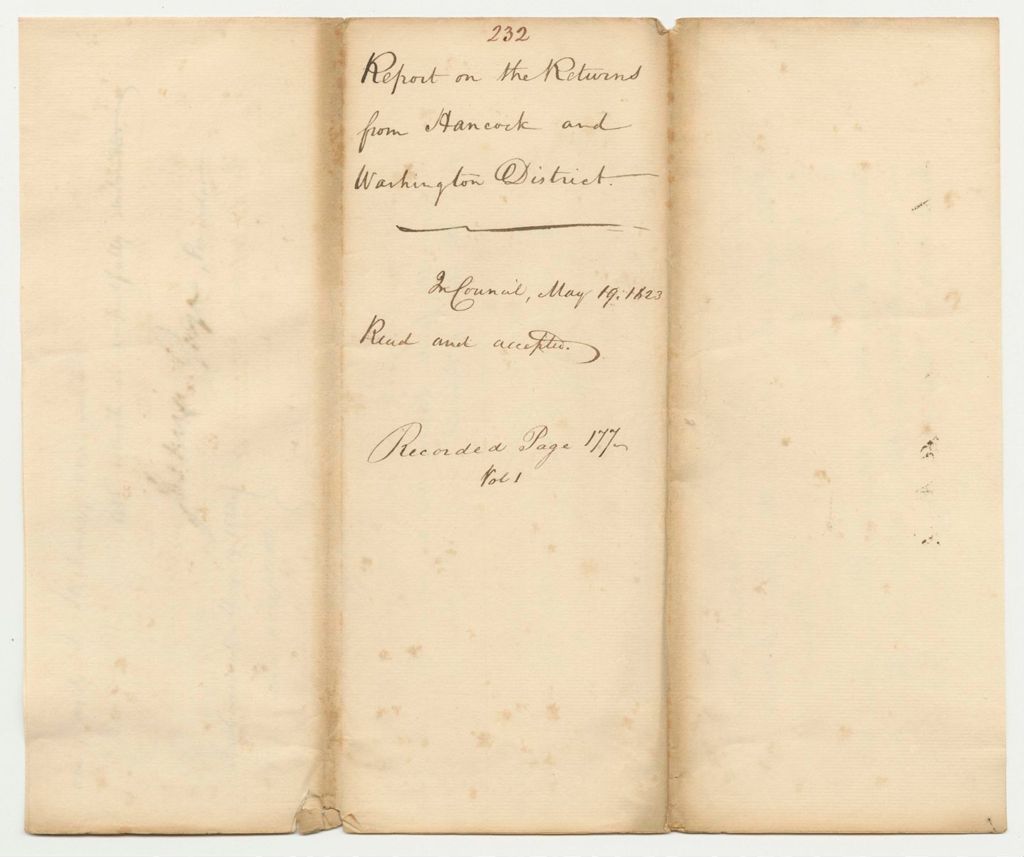 232
Report on the Returns
from Hancock and
Washington District.
In Council, May 19. 1823
Read and accepted.
Recorded Page 177
Vol 1